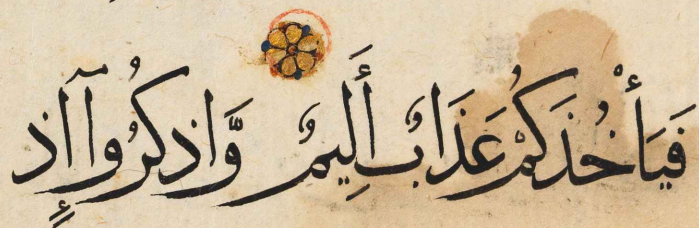 فَيَأْخُذَكُمْ عَذَابٌ أَلِيمٌ وَّاذكُرُوٓا۟ إِذ